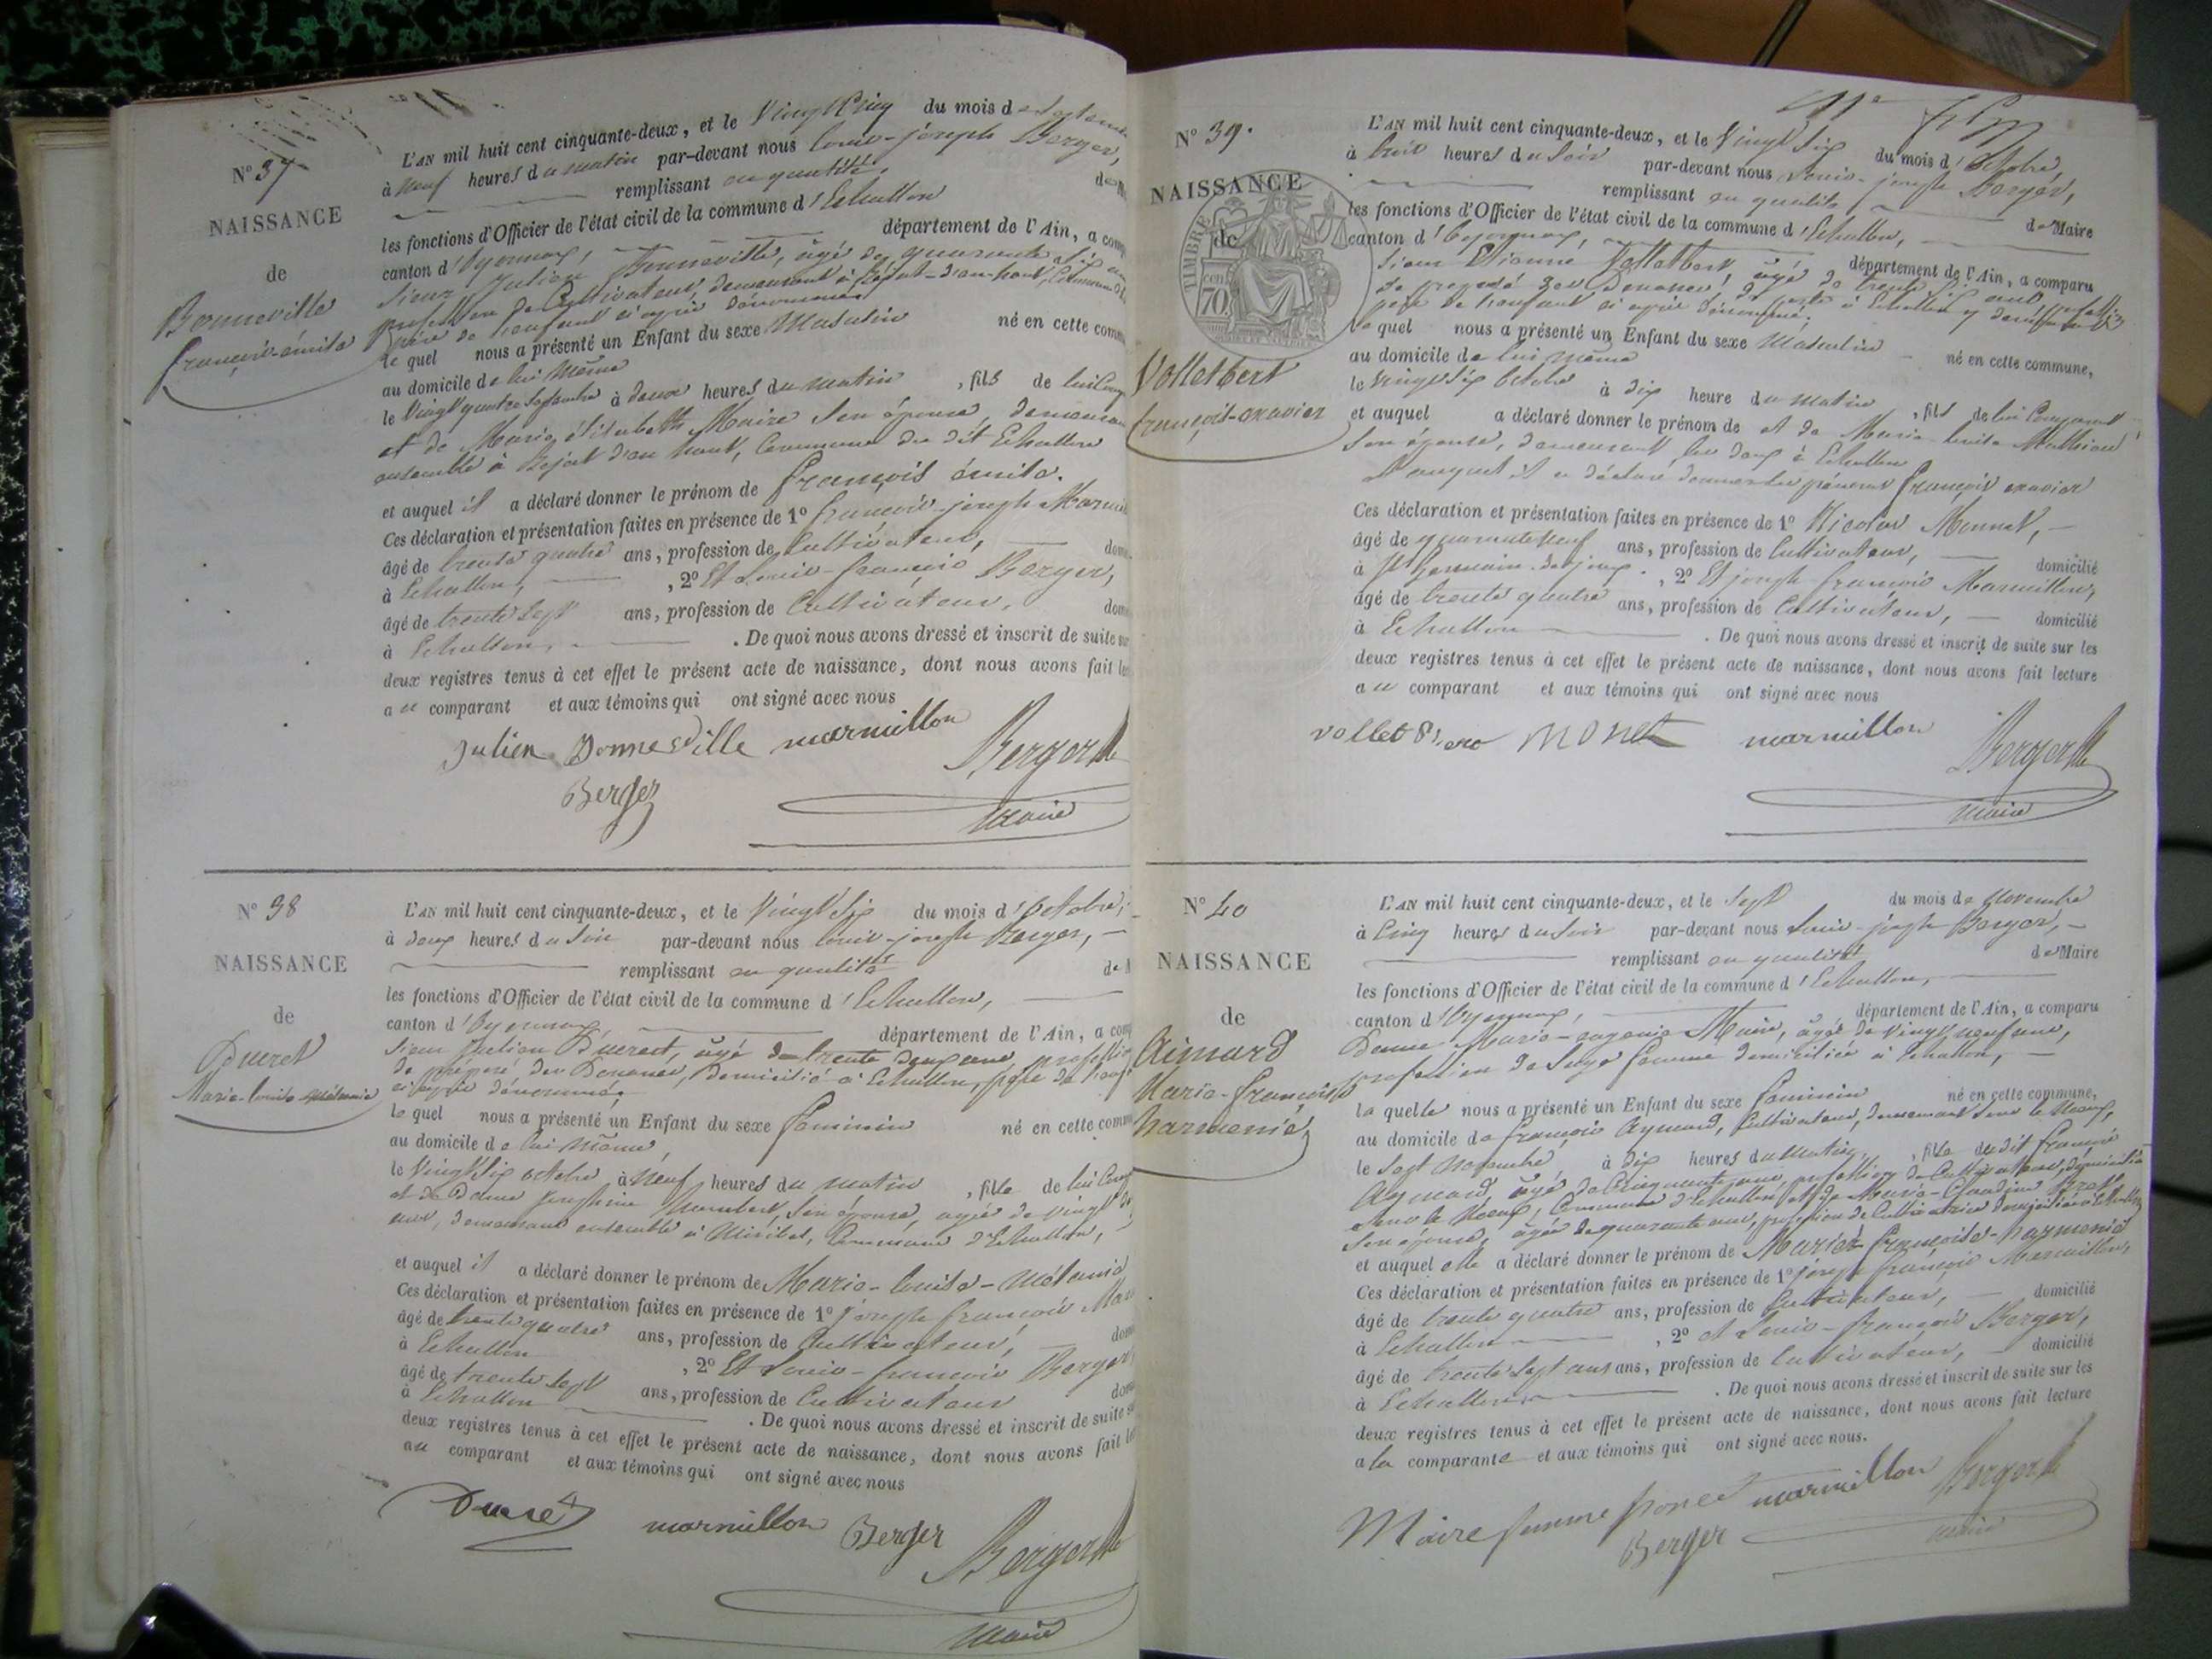 N° 37
NAISSANCE
de
Bonneville
françois-émile
L'AN mil huit cent cinquante-deux, et le Vingt Cinq du mois de Septem
à neuf heures du matin par-devant nous louis-joseph Berger,
remplissant en qualité de
les fonctions d'Officier de l'état civil de la commune d'Echallon
canton d'Oyonnax, département de l'Ain, a com
Sieur Julien Bonneville, âgé de quarante six ans
profession de Cultivateur, demeurant à
père de l'enfant ci après dénommé
le quel nous a présenté un Enfant du sexe Masculin né en cette comm
au domicile de lui même
le Vingt quatre Septembre à deux heures du matin, fils de lui Comp
et de Marie élisabeth Maire son épouse, demeurant
ensemble à d'en haut, Commune du dit Echallon
et auquel il a déclaré donner le prénom de françois émile.
Ces déclaration et présentation faites en présence de 1° françois-joseph Marmil
âgé de trente quatre ans, profession de Cultivateur, dom
à Echallon, 2° Et Louis-françois Berger,
âgé de trente Sept ans, profession de Cultivateur, dom
à Echallon, . De quoi nous avons dressé et inscrit de suite sur
deux registres tenus à cet effet le présent acte de naissance, dont nous avons fait lec
au comparant et aux témoins qui ont signé avec nous
Julien Bonneville marmillon
Berger
Berger
Maire
N° 38
NAISSANCE
de
Ducret
Marie-louise-Mélanie
L'AN mil huit cent cinquante-deux, et le Vingt Six du mois d'Octobre,
à deux heures du Soir par-devant nous louis-joseph Berger,
remplissant en qualité de M
les fonctions d'Officier de l'état civil de la commune d'Echallon,
canton d'Oyonnax, département de l'Ain, a com
Sieur Julien Ducret, âgé de trente deux ans, professio
de préposé des Douanes, domicilié à Echallon, père de l'enf
ci après dénommé,
le quel nous a présenté un Enfant du sexe féminin né en cette comm
au domicile de lui même,
le Vingt Six octobre à Neuf heures du matin, fille de lui Comp
et de Dame Joséphine Humbert, son épouse, agée de vingt
ans, demeurant ensemble à Miribel, Commune d'Echallon,
et auquel il a déclaré donner le prénom de Marie-louise-Mélanie
Ces déclaration et présentation faites en présence de 1° joseph françois Mar
âgé de trente quatre ans, profession de Cultivateur, dom
à Echallon, 2° Et Louis-françois Berger
âgé de trente Sept ans, profession de Cultivateur dom
à Echallon . De quoi nous avons dressé et inscrit de suite s
deux registres tenus à cet effet le présent acte de naissance, dont nous avons fait le
au comparant et aux témoins qui ont signé avec nous
Ducret marmillon Berger
Berger
Maire
N° 39.
NAISSANCE
de
TIMBRE
70
Volletbert
françois-exavier
L'AN mil huit cent cinquante-deux, et le Vingt Six du mois d'Octobre,
à huit heures du Soir par-devant nous Louis-joseph Berger,
remplissant en qualité de Maire
les fonctions d'Officier de l'état civil de la commune d'Echallon,
canton d'Oyonnax, département de l'Ain, a comparu
Sieur Etienne Volletbert, âgé de trente six ans profession
de préposé des Douanes, à Echallon y demeurant
père de l'enfant ci après dénommé,
le quel nous a présenté un Enfant du sexe Masculin né en cette commune,
au domicile de lui même
le Vingt Six Octobre à dix heure du matin, fils de lui Comparant
et auquel a déclaré donner le prénom de et de Marie-louise Mathieu
Son épouse, demeurant les deux à Echallon
et auquel il a déclaré donner les prénoms françois exavier
Ces déclaration et présentation faites en présence de 1° Nicolas Monnet,
âgé de quarante neuf ans, profession de Cultivateur, domicilié
à St Germain-de-joux, 2° Et joseph françois Marmillon,
âgé de trente quatre ans, profession de Cultivateur, domicilié
à Echallon . De quoi nous avons dressé et inscrit de suite sur les
deux registres tenus à cet effet le présent acte de naissance, dont nous avons fait lecture
au comparant et aux témoins qui ont signé avec nous
monet marmillon
Berger
Maire
N° 40
NAISSANCE
de
Aimard
Marie-françoise
harmenie
L'AN mil huit cent cinquante-deux, et le Sept du mois de Novembre
à Cinq heures du Soir par-devant nous Louis-joseph Berger,
remplissant en qualité de Maire
les fonctions d'Officier de l'état civil de la commune d'Echallon,
canton d'Oyonnax, département de l'Ain, a comparu
Dame Marie-eugenie Maire, âgée de Vingt neuf ans,
profession de Sage femme domiciliée à Echallon,
la quelle nous a présenté un Enfant du sexe féminin né en cette commune,
au domicile de françois Aymard, Cultivateur, demeurant
le Sept Novembre à dix heures du Matin, fille du dit françois
Aymard, âgé de Cinquante ans, profession de Cultivateur, domicilié
Commune d'Echallon et de Marie-Claudine
Son épouse, âgée de quarante ans, profession de Cultivatrice domiciliée à Echallon
et auquel elle a déclaré donner le prénom de Marie-françoise-harmenie
Ces déclaration et présentation faites en présence de 1° joseph françois Marmillon,
âgé de trente quatre ans, profession de Cultivateur, domicilié
à Echallon, 2° et Louis-françois Berger,
âgé de trente Sept ans ans, profession de Cultivateur, domicilié
à Echallon, . De quoi nous avons dressé et inscrit de suite sur les
deux registres tenus à cet effet le présent acte de naissance, dont nous avons fait lecture
a la comparante et aux témoins qui ont signé avec nous.
Maire femme marmillon Berger
Berger
Maire